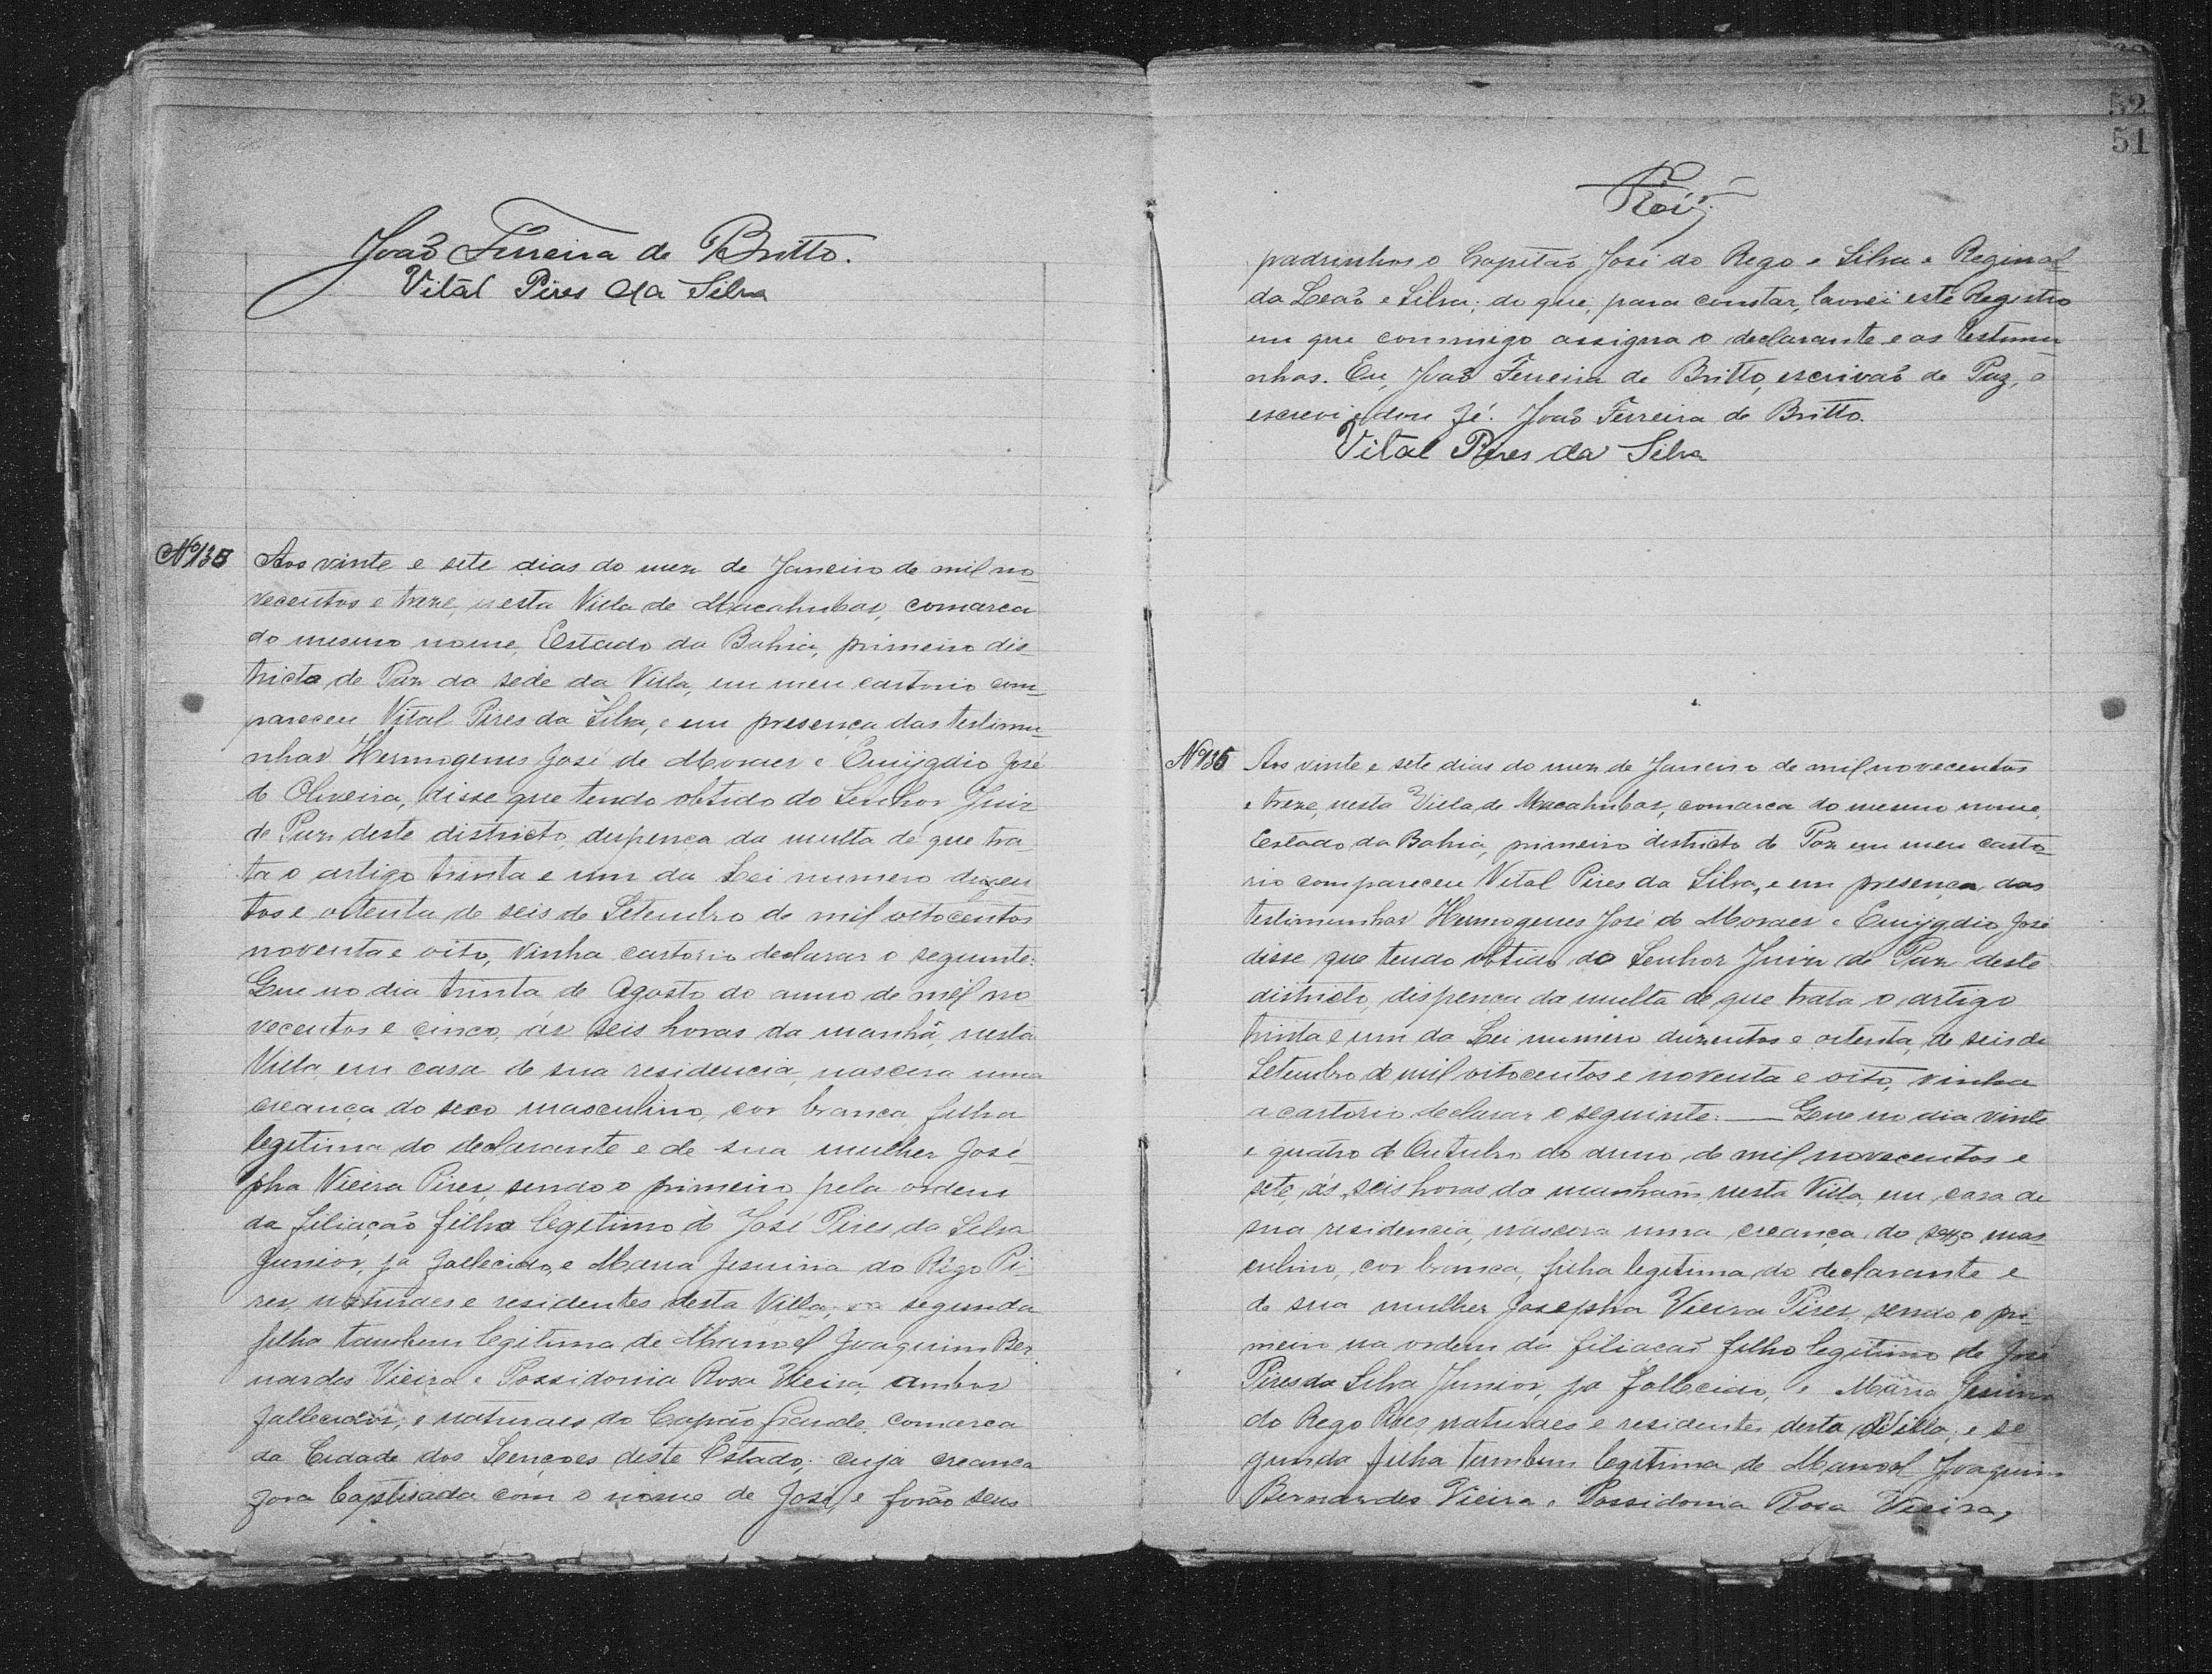 João Ferreira de Britto.
Vital Pires da Silva
Nº 135
Aos vinte e sete dias do mez de Janeiro de mil no-
vecentos e treze, nesta Villa de Macahubas, comarca
do mesmo nome, Estado da Bahia, primeiro dis-
tricto de Paz da séde da Villa, em meu cartorio com-
pareceu Vital Pires da Silva, e em presença das testimu-
nhas Hermogenes José de Moraes e Emijgdio José
de Oliveira, disse que tendo obtido do Senhor Juiz
de Paz deste districto, despença da multa de que tra-
ta o artigo trinta e um da Lei numero duzen
tos e oitenta de seis de Setembro de mil oitocentos
noventa e oito, vinha cartorio declarar o seguinte:
Que no dia trinta de Agosto do anno de mil no
vecentos e cinco, ás seis horas da manhã, nesta
Villa em casa de sua residencia, nascera uma
creança do seco masculino, cor branca, filha
legitima do declarante e de sua mulher José-
pha Vieira Pires, sendo o primeiro pela ordem
da filiação filho legitimo de José Pires da Silva
Junior, já fallecido, e Maria Jesuina do Rego Pi-
res, naturaes e residentes desta Villa, e a segunda
filha tambem legitima de Manoel Joaquim Ber-
nardes Vieira e Possidonia Rosa Vieira, ambos
fallecidos, e naturaes do Capão Grande, comarca
da Cidade dos Lençoes deste Estado; cuja creança
fora baptisada com o nome de José, e forão seus
52
51
padrinhos o Capitão José do Rego e Silva e Reginal-
da Leão e Silva; do que, para constar, lavrei este Registro
em que commigo assigna o declarante e as testimu-
nhas. Eu, João Ferreira de Britto, escrivão de Paz, o
escrevi e dou fé. João Ferreira de Britto.
Vital Pires da Silva
Nº 136
Aos vinte e sete dias do mez de Janeiro de mil novecentos
e treze, nesta Villa de Macahubas, comarca do mesmo nome,
Estado da Bahia, primeiro districto de Paz em meu carto-
rio compareceu Vital Pires da Silva, e em presença das
testimunhas Hermogenes José de Moraes e Emijgdio José
disse que tendo obtido do Senhor Juiz de Paz deste
districto, dispença da multa de que trata o artigo
trinta e um da Lei numero duzentos e oitenta, de seis de
Setembro de mil oitocentos e noventa e oito, vinha
a cartorio declarar o seguinte: — Que no dia vinte
e quatro de Outubro do anno de mil novecentos e
sete, ás seis horas da manham, nesta Villa, em casa de
sua residencia, nascera uma creança do sexo mas-
culino, cor branca, filha legitima do declarante e
de sua mulher Josepha Vieira Pires, sendo o pri-
meiro na ordem da filiacão filho legitimo de José
Pires da Silva Junior, já fallecido, e Maria Jesuina
do Rego Pires, naturaes e residentes desta Villa, e se-
gunda filha tambem legitima de Manoel Joaquim
Bernardes Vieira e Possidonia Rosa Vieira,